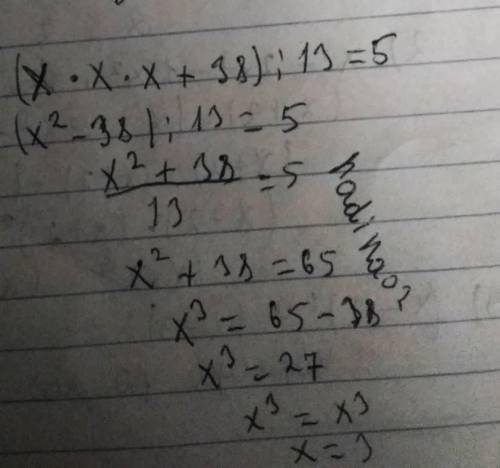 (x · x · x + 38) : 13 = 5
(x² - 38) : 13 = 5
x² + 38
= 5
13
x² + 38 = 65
x³ = 65 - 38
x³ = 27
x³ = x3
x = 3